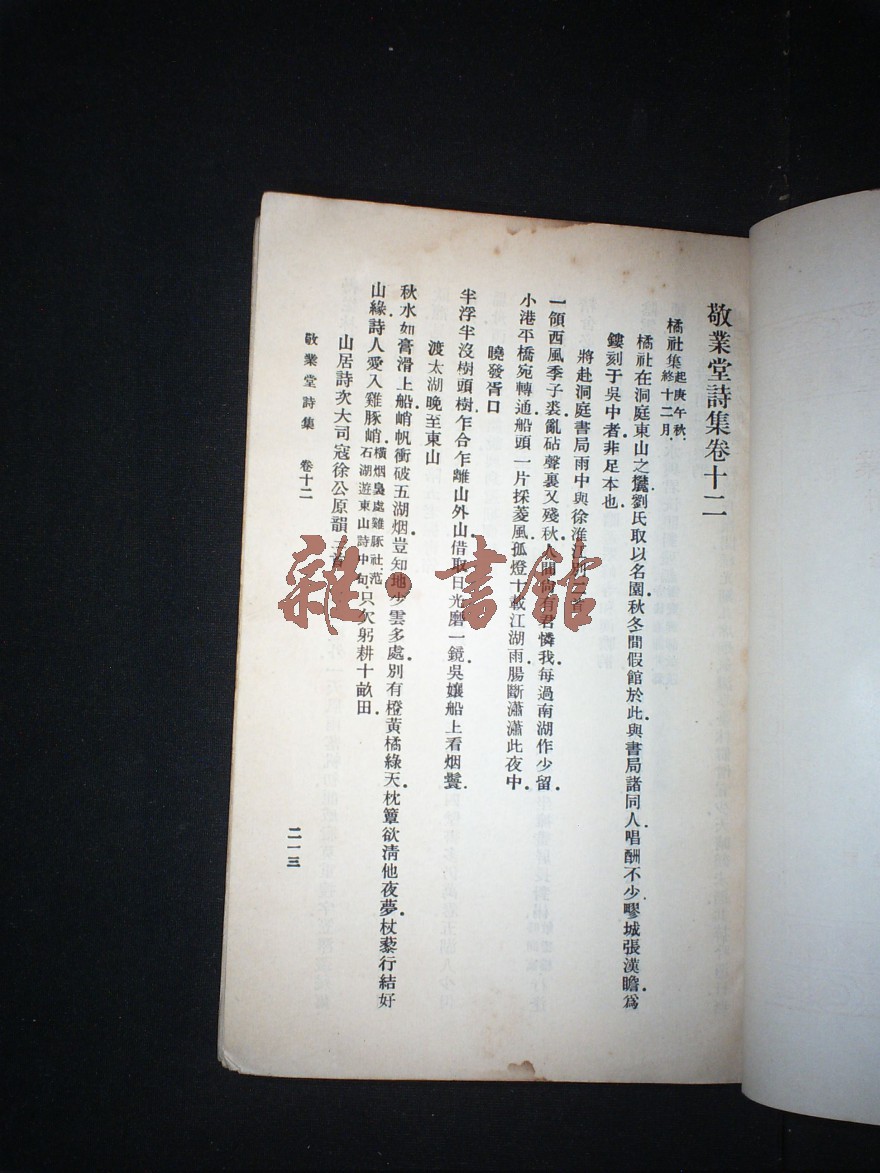 敬業堂詩集卷十二
橘社集起庚午秋終十二月
橘社在洞庭東山之麓劉氏取以名園秋冬間假館於此與書局諸同人唱酬不少疁城張漢瞻爲
鏤刻于吳中者非足本也
將赴洞庭書局雨中與徐淮江別二首
一領西風季子裘亂砧聲裏又殘秋人間尙有君憐我每過南湖作少留
小港平橋宛轉通船頭一片採菱風孤燈十載江湖雨腸斷瀟瀟此夜中
曉發胥口
半浮半沒樹頭樹乍合乍離山外山借取日光磨一鏡吳孃船上看烟鬟
渡太湖晚至東山
秋水如膏滑上船峭帆衝破五湖烟豈知地少雲多處別有橙黃橘綠天枕簟欲淸他夜夢杖藜行結好
山緣詩人愛入雞豚峭橫烟裊處雞豚社范石湖遊東山詩中句只欠躬耕十畝田
山居詩次大司寇徐公原韻三首
敬業堂詩集 卷十二
二一三
雜·書館